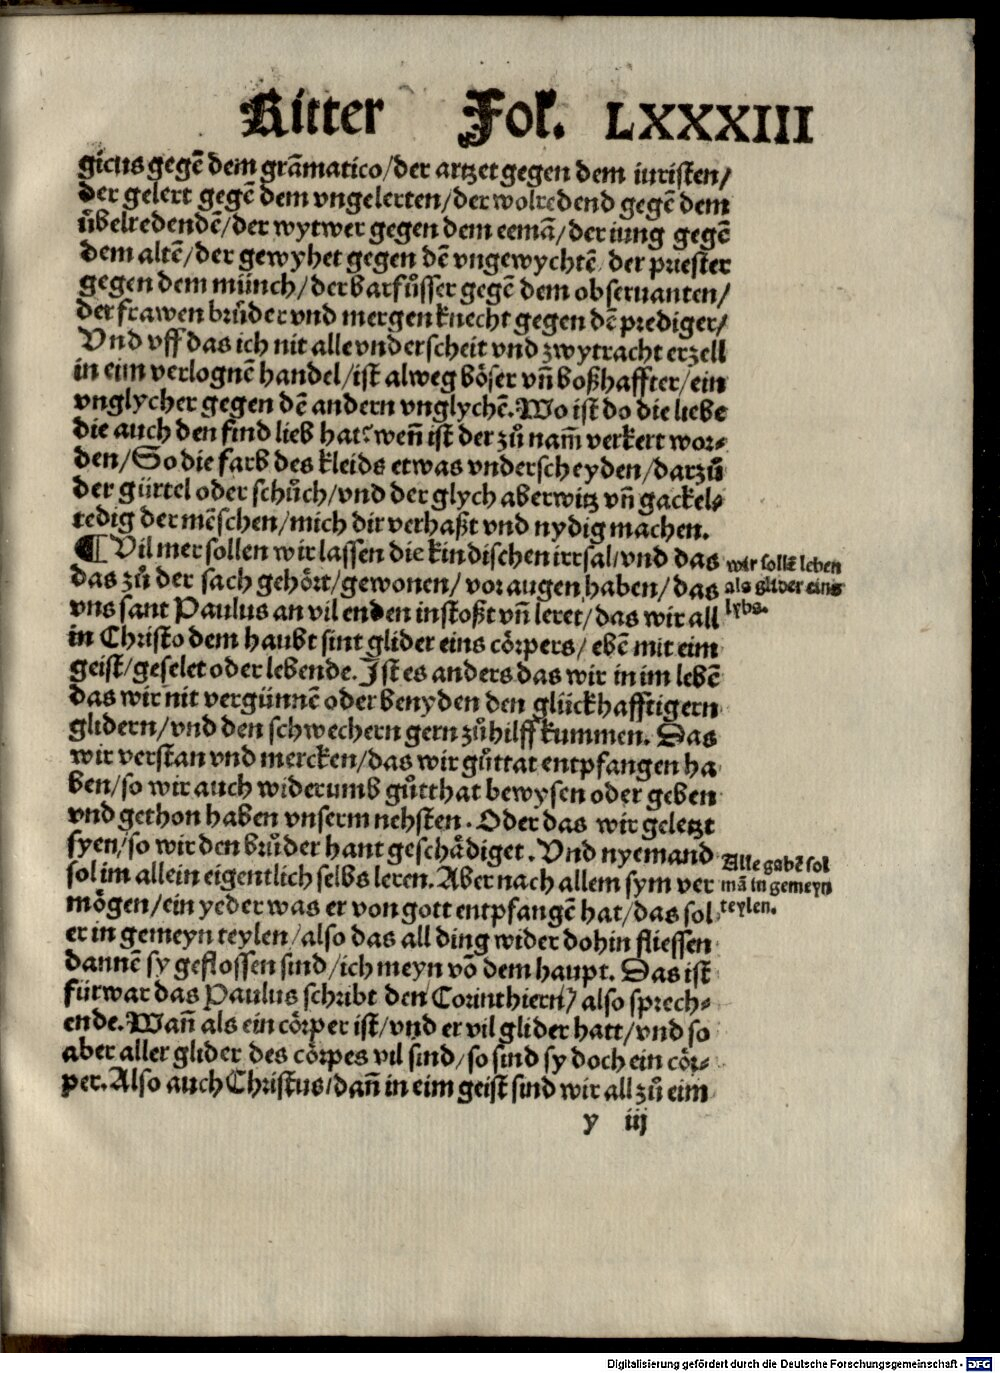 Ritter Fol. LXXXIII
gicus gegē dem grāmatico/der artzet gegen dem iuristen/
der gelert gegē dem vngelerten/der wolredend gegē dem
übelredendē/der wytwer gegen dem eemā/der iung gegē
dem altē/der gewyhet gegen dē vngewychtē/der priester
gegen dem münch/der barfůsser gegē dem obseruanten/
der frawen brůder vnd mergen knecht gegen dē prediger/
Vnd vff das ich nit alle vnderscheit vnd zwytracht erzell
in eim verlognē handel/ist alweg böser vn̄ boßhaffter/ein
vnglycher gegen dē andern vnglychē. Wo ist do die liebe
die auch den find lieb hat? wen̄ ist der zů nam̄ verkert wor⸗
den/So die farb des kleids etwas vnderscheyden/darzů
der gürtel oder schůch/vnd der glych aberwitz vn̄ gackel⸗
tedig der mēschen/mich dir verhaßt vnd nydig machen.
¶ Vil mer sollen wir lassen die kindischen irrsal/vnd das
das zů der sach gehört/gewonen/vor augen haben/das
vns sant Paulus an vil enden instoßt vn̄ leret/das wir all
in Christo dem haubt sint glider eins cörpers/ebē mit eim
geist/geselet oder lebende. Ist es anders das wir in im lebē
das wir nit vergünnē oder benyden den glückhafftigern
glidern/vnd den schwechern gern zů hilff kummen. Das
wir verstan vnd mercken/das wir gůttat entpfangen ha
ben/so wir auch widerumb gůtthat bewysen oder geben
vnd gethon haben vnserm nehsten. Oder das wir geletzt
syen/so wir den brůder hant geschädiget. Vnd nyemand
sol im allein eigentlich selbs leren. Aber nach allem sym ver
mögen/ein yeder was er von gott entpfangē hat/das sol
er in gemeyn teylen/also das all ding wider dohin fliessen
dannē sy geflossen sind/ich meyn vō dem haupt. Das ist
fürwar das Paulus schribt den Corinthiern/also sprech⸗
ende. Wan̄ als ein cörper ist/vnd er vil glider hatt/vnd so
aber aller glider des cörpes vil sind/so sind sy doch ein cör⸗
per. Also auch Christus/dan̄ in eim geist sind wir all zů eim
y iij
wir sollē leben
als glider eins
lybs.
Alle gabē sol
mā in gemeyn
teylen.
Digitalisierung gefördert durch die Deutsche Forschungsgemeinschaft - DFG